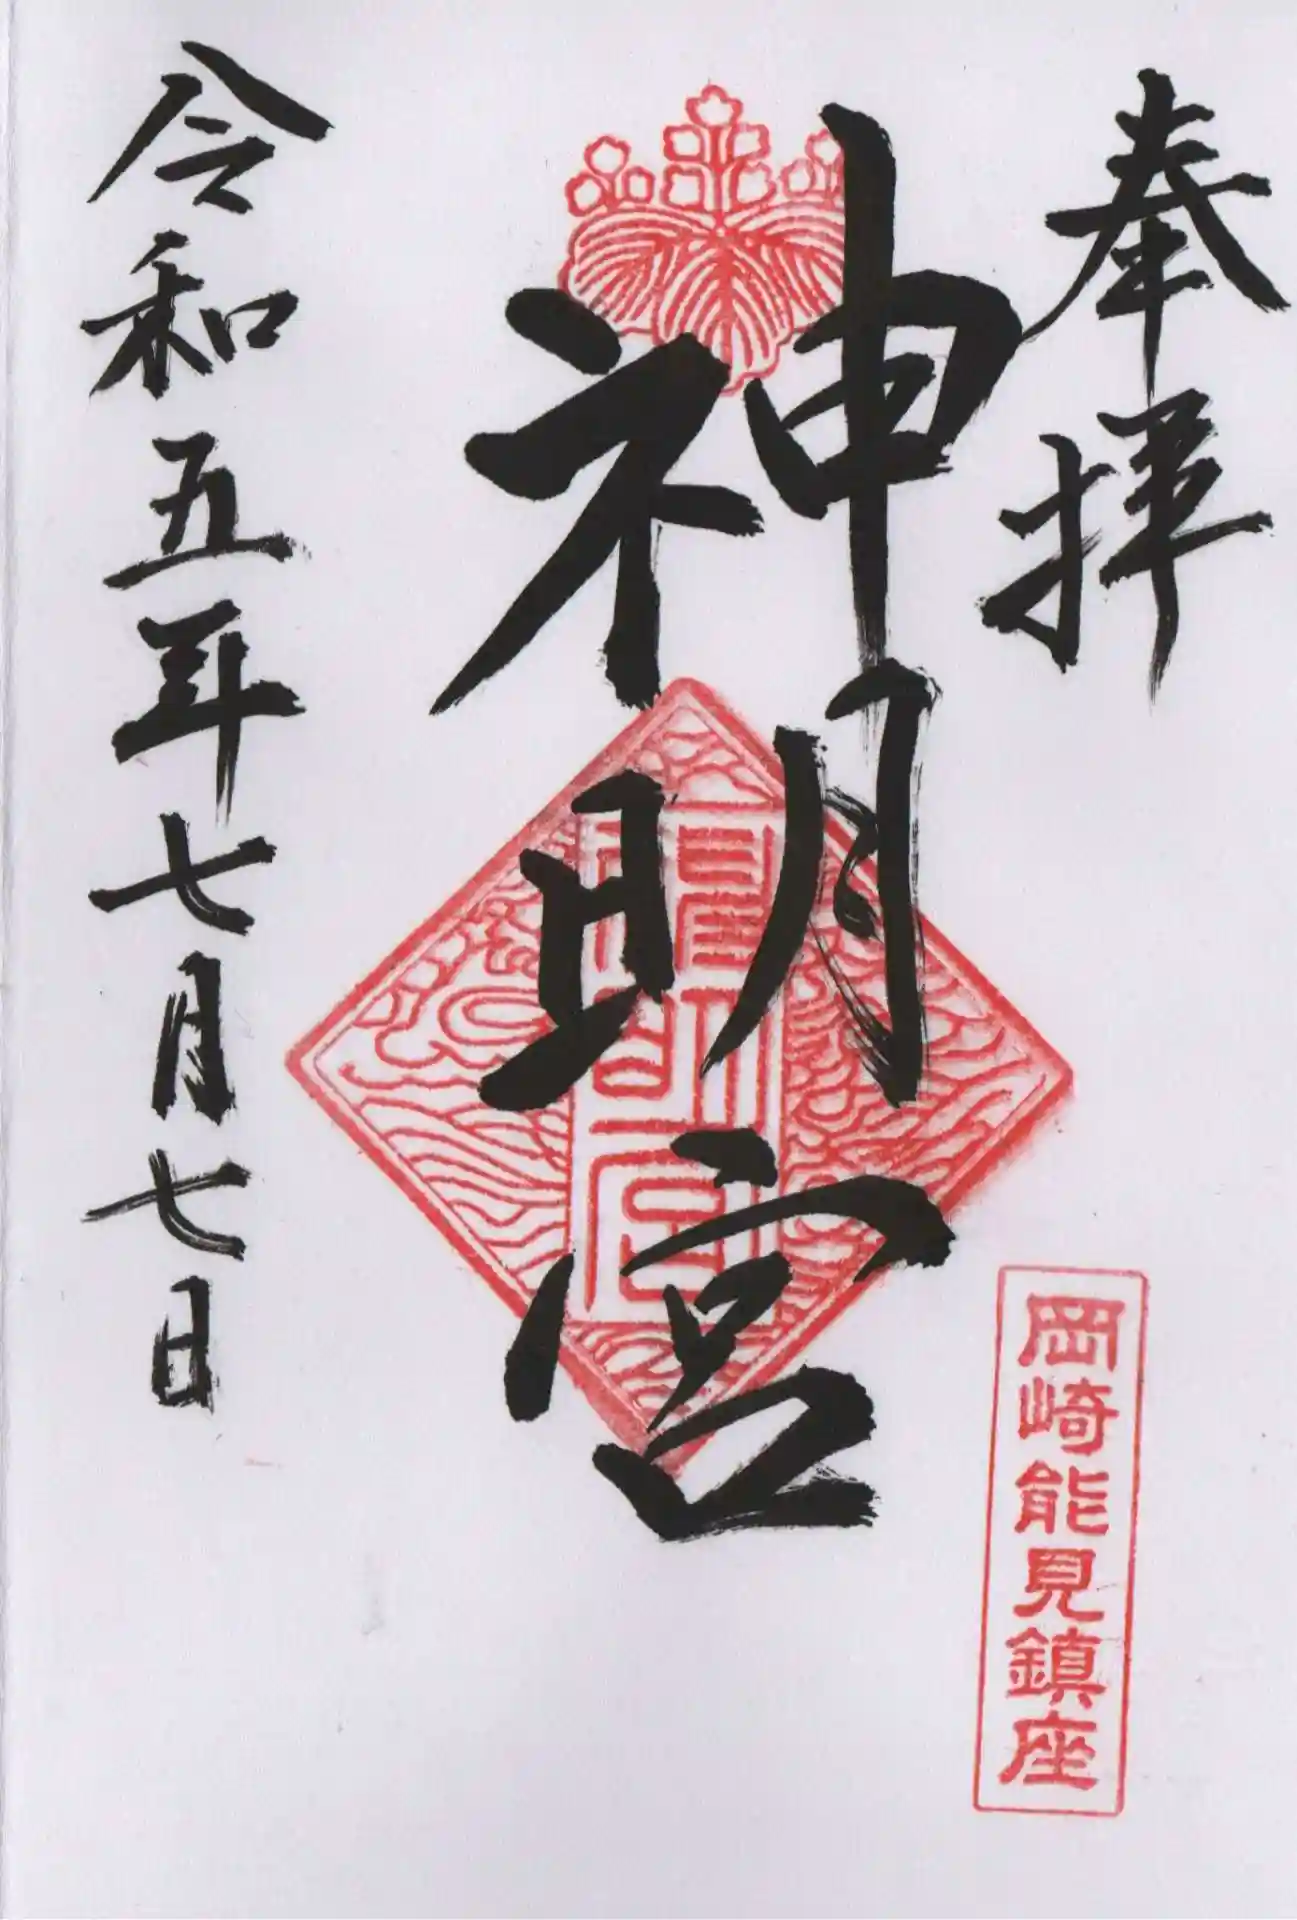 奉拝
岡崎能見鎮座
神明宮
令和五年七月七日